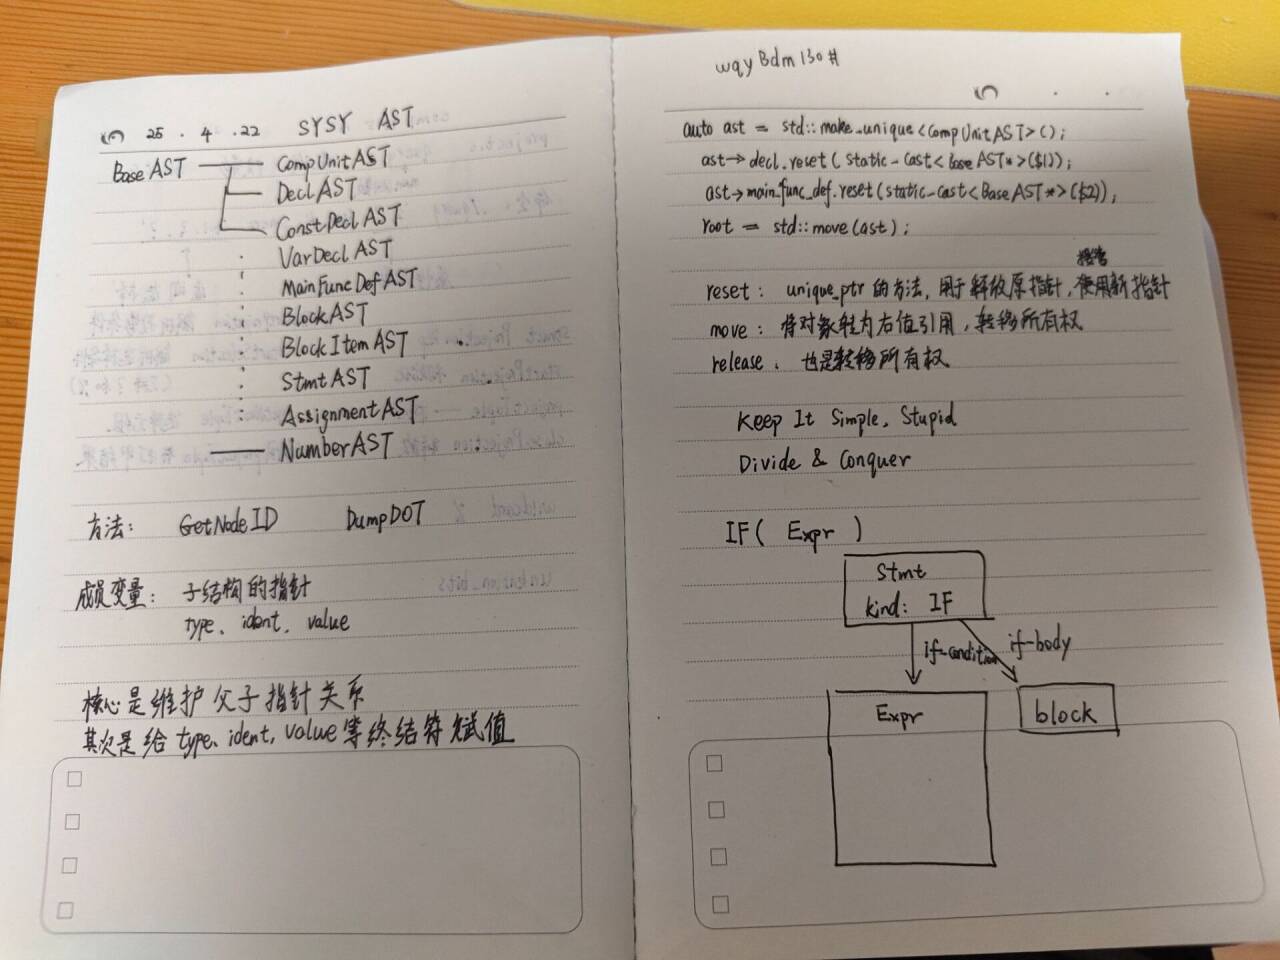 25 . 4 . 22 SYSY AST
BaseAST CompUnitAST
DeclAST
ConstDeclAST
VarDeclAST
MainFuncDefAST
BlockAST
BlockItemAST
StmtAST
AssignmentAST
NumberAST
方法: GetNodeID DumpDOT
成员变量: 子结构的指针
type、ident、value
核心是维护父子指针关系
其次是给type、ident, value等终结符赋值
wqyBdm130#
auto ast = std::make_unique<CompUnitAST>();
ast->decl.reset(static-cast<BaseAST*>($1));
ast->main_func_def.reset(static-cast<BaseAST*>($2));
root = std::move(ast);
reset: unique_ptr的方法, 用于释放原指针, 使用新指针
move: 将对象转为右值引用, 转移所有权
release、也是转移所有权
Keep It Simple, Stupid
Divide & Conquer
IF( Expr )
Stmt
kind: IF
if-condition if-body
Expr block